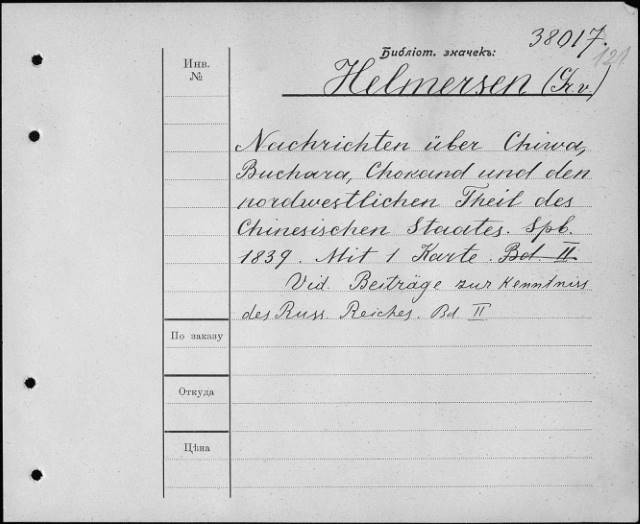 38017.
121
Библіот. значекъ:
Инв.
№
Helmersen (Gr. v.)
Nachrichten über Chiwa,
Buchara, Chokand und den
nordwestlichen Theil des
Chinesischen Staates. Spb.
1839. Mit 1 Karte. Bd. II
Vid. Beiträge zur Kenntniss
des Russ. Reiches. Bd II
По заказу
Откуда
Цѣна